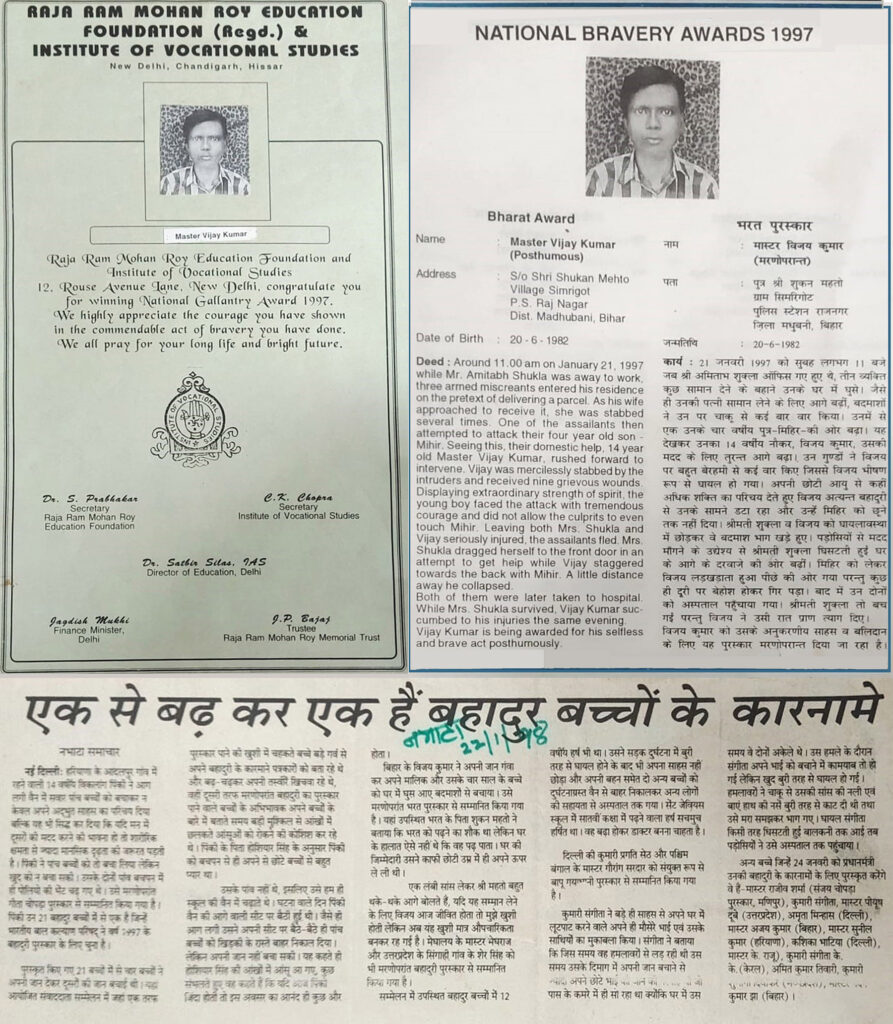 RAJA RAM MOHAN ROY EDUCATION
FOUNDATION (Regd.) &
INSTITUTE OF VOCATIONAL STUDIES
New Delhi, Chandigarh, Hissar
Master Vijay Kumar
Raja Ram Mohan Roy Education Foundation and
Institute of Vocational Studies
12. Rouse Avenue Lane, New Delhi, congratulate you
for winning National Gallantry Award 1997.
We highly appreciate the courage you have shown
in the commendable act of bravery you have done.
We all pray for your long life and bright future.
INSTITUTE OF VOCATIONAL STUDIES
Dr. S. Prabhakar
Secretary
Raja Ram Mohan Roy
Education Foundation
C.K. Chopra
Secretary
Institute of Vocational Studies
Dr. Satbir Silas, IAS
Director of Education, Delhi
Jagdish Mukhi
Finance Minister,
Delhi
J.P. Bajaj
Trustee
Raja Ram Mohan Roy Memorial Trust
NATIONAL BRAVERY AWARDS 1997
Bharat Award
Name : Master Vijay Kumar
(Posthumous)
Address : S/o Shri Shukan Mehto
Village Simrigot
P.S. Raj Nagar
Dist. Madhubani, Bihar
Date of Birth : 20-6-1982
Deed : Around 11.00 am on January 21, 1997
while Mr. Amitabh Shukla was away to work,
three armed miscreants entered his residence
on the pretext of delivering a parcel. As his wife
approached to receive it, she was stabbed
several times. One of the assailants then
attempted to attack their four year old son -
Mihir. Seeing this, their domestic help, 14 year
old Master Vijay Kumar, rushed forward to
intervene. Vijay was mercilessly stabbed by the
intruders and received nine grievous wounds.
Displaying extraordinary strength of spirit, the
young boy faced the attack with tremendous
courage and did not allow the culprits to even
touch Mihir. Leaving both Mrs. Shukla and
Vijay seriously injured, the assailants fled. Mrs.
Shukla dragged herself to the front door in an
attempt to get help while Vijay staggered
towards the back with Mihir. A little distance
away he collapsed.
Both of them were later taken to hospital.
While Mrs. Shukla survived, Vijay Kumar suc-
cumbed to his injuries the same evening.
Vijay Kumar is being awarded for his selfless
and brave act posthumously.
भरत पुरस्कार
नाम : मास्टर विजय कुमार
(मरणोपरान्त)
पता : पुत्र श्री शुकन महतो
ग्राम सिमरिगोट
पुलिस स्टेशन राजनगर
जिला मधुबनी, बिहार
जन्मतिथि : 20-6-1982
कार्य : 21 जनवरी 1997 को सुबह लगभग 11 बजे
जब श्री अमिताभ शुक्ला ऑफिस गए हुए थे, तीन व्यक्ति
कुछ सामान देने के बहाने उनके घर में घुसे। जैसे
ही उनकी पत्नी सामान लेने के लिए आगे बढ़ीं, बदमाशों
ने उन पर चाकू से कई वार किया। उनमें से
एक उनके चार वर्षीय पुत्र-मिहिर-की ओर बढ़ा। यह
देखकर उनका 14 वर्षीय नौकर, विजय कुमार, उसकी
मदद के लिए तुरन्त आगे बढ़ा। उन गुण्डों ने विजय
पर बहुत बेरहमी से कई वार किए जिससे विजय भीषण
रूप से घायल हो गया। अपनी छोटी आयु से कहीं
अधिक शक्ति का परिचय देते हुए विजय अत्यन्त बहादुरी
से उनके सामने डटा रहा और उन्हें मिहिर को छूने
तक नहीं दिया। श्रीमती शुक्ला व विजय को घायलावस्था
में छोड़कर वे बदमाश भाग खड़े हुए। पड़ोसियों से मदद
माँगने के उद्देश्य से श्रीमती शुक्ला घिसटती हुई घर
के आगे के दरवाजे की ओर बढ़ीं। मिहिर को लेकर
विजय लड़खड़ाता हुआ पीछे की ओर गया परन्तु कुछ
ही दूरी पर बेहोश होकर गिर पड़ा। बाद में उन दोनों
को अस्पताल पहुँचाया गया। श्रीमती शुक्ला तो बच
गई परन्तु विजय ने उसी रात प्राण त्याग दिए।
विजय कुमार को उसके अनुकरणीय साहस व बलिदान
के लिए यह पुरस्कार मरणोपरान्त दिया जा रहा है।
एक से बढ़ कर एक हैं बहादुर बच्चों के कारनामे
नभाटा 22/1/98
नभाटा समाचार
नई दिल्ली: हरियाणा के आदलपुर गांव में
रहने वाली 14 वर्षीय विकलांग पिंकी ने आग
लगी वैन में सवार पांच बच्चों को बचाकर न
केवल अपने अदभुत साहस का परिचय दिया
बल्कि यह भी सिद्ध कर दिया कि यदि मन में
दूसरों की मदद करने की भावना हो तो शारीरिक
क्षमता से ज्यादा मानसिक दृढ़ता की जरूरत पड़ती
है। पिंकी ने पांच बच्चों को तो बचा लिया लेकिन
खुद को न बचा सकी। उसके दोनों पांव बचपन में
ही पोलियो की भेंट चढ़ गए थे। उसे मरणोपरांत
गीता चोपड़ा पुरस्कार से सम्मानित किया गया है।
पिंकी उन 21 बहादुर बच्चों में से एक है जिन्हें
भारतीय बाल कल्याण परिषद् ने वर्ष 1997 के
बहादुरी पुरस्कार के लिए चुना है।
पुरस्कृत किए गए 21 बच्चों में से चार बच्चों ने
अपनी जान देकर दूसरों की जान बचाई थी। यहां
आयोजित संवाददाता सम्मेलन में जहां एक तरफ
पुरस्कार पाने की खुशी में चहकते बच्चे बड़े गर्व से
अपने बहादुरी के कारनामे पत्रकारों को बता रहे थे
और बढ़-चढ़कर अपनी तस्वीरें खिंचवा रहे थे,
वहीं दूसरी तरफ मरणोपरांत बहादुरी का पुरस्कार
पाने वाले बच्चों के अभिभावक अपने बच्चों के
बारे में बताते समय बड़ी मुश्किल से आंखों में
छलकते आंसुओं को रोकने की कोशिश कर रहे
थे। पिंकी के पिता होशियार सिंह के अनुसार पिंकी
को बचपन से ही अपने से छोटे बच्चों से बहुत
प्यार था।
उसके पांव नहीं थे, इसलिए उसे हम ही
स्कूल की वैन में चढ़ाते थे। घटना वाले दिन पिंकी
वैन की आगे वाली सीट पर बैठी हुई थी। जैसे ही
आग लगी उसने अपनी सीट पर बैठे-बैठे ही पांच
बच्चों को खिड़की के रास्ते बाहर निकाल दिया।
लेकिन अपनी जान नहीं बचा सकी। यह कहते ही
होशियार सिंह की आंखों में आंसू आ गए, कुछ
संभलते हुए वह कहते हैं कि यदि आज पिंकी
जिंदा होती तो इस अवसर का आनंद ही कुछ और
होता।
बिहार के विजय कुमार ने अपनी जान गंवा
कर अपने मालिक और उसके चार साल के बच्चे
को घर में घुस आए बदमाशों से बचाया। उसे
मरणोपरांत भरत पुरस्कार से सम्मानित किया गया
है। यहां उपस्थित भरत के पिता शुकन महतो ने
बताया कि भरत को पढ़ने का शौक था लेकिन घर
के हालात ऐसे नहीं थे कि वह पढ़ पाता। घर की
जिम्मेदारी उसने काफी छोटी उम्र में ही अपने ऊपर
ले ली थी।
एक लंबी सांस लेकर श्री महतो बहुत
थके-थके आगे बोलते हैं, यदि यह सम्मान लेने
के लिए विजय आज जीवित होता तो मुझे खुशी
होती लेकिन अब यह खुशी मात्र औपचारिकता
बनकर रह गई है। मेघालय के मास्टर मेघराज
और उत्तरप्रदेश के सिंगाही गांव के शेर सिंह को
भी मरणोपरांत बहादुरी पुरस्कार से सम्मानित
किया गया है।
सम्मेलन में उपस्थित बहादुर बच्चों में 12
वर्षीय हर्ष भी था। उसने सड़क दुर्घटना में बुरी
तरह से घायल होने के बाद भी अपना साहस नहीं
छोड़ा और अपनी बहन समेत दो अन्य बच्चों को
दुर्घटनाग्रस्त वैन से बाहर निकालकर अन्य लोगों
की सहायता से अस्पताल तक गया। सेंट जेवियस
स्कूल में सातवीं कक्षा में पढ़ने वाला हर्ष सचमुच
हर्षित था। वह बड़ा होकर डाक्टर बनना चाहता है।
दिल्ली की कुमारी प्रगति सेठ और पश्चिम
बंगाल के मास्टर गौरांग सरदार को संयुक्त रूप से
बापू पुरस्कार से सम्मानित किया गया
है।
कुमारी संगीता ने बड़े ही साहस से अपने घर में
लूटपाट करने वाले अपने ही मौसेरे भाई एवं उसके
साथियों का मुकाबला किया। संगीता ने बताया
कि जिस समय वह हमलावरों से लड़ रही थी उस
समय उसके दिमाग में अपनी जान बचाने से
पास के कमरे में ही सो रहा था क्योंकि घर में उस
समय वे दोनों अकेले थे। उस हमले के दौरान
संगीता अपने भाई को बचाने में कामयाब तो हो
गई लेकिन खुद बुरी तरह से घायल हो गई।
हमलावरों ने चाकू से उसकी सांस की नली एवं
बाएं हाथ की नसें बुरी तरह से काट दी थी तथा
उसे मरा समझकर भाग गए। घायल संगीता
किसी तरह घिसटती हुई बालकनी तक आई तब
पड़ोसियों ने उसे अस्पताल तक पहुंचाया।
अन्य बच्चे जिन्हें 24 जनवरी को प्रधानमंत्री
उनकी बहादुरी के कारनामों के लिए पुरस्कृत करेंगे
वे हैं-मास्टर राजीव शर्मा (संजय चोपड़ा
पुरस्कार, मणिपुर), कुमारी संगीता, मास्टर पीयूष
दूबे (उत्तरप्रदेश), अमृता मिन्हास (दिल्ली),
मास्टर अजय कुमार (बिहार), मास्टर सुनील
कुमार (हरियाणा), कशिका भाटिया (दिल्ली),
मास्टर के. राजू, कुमारी संगीता के.
के.(केरल), अमित कुमार तिवारी, कुमारी
कुमार झा (बिहार)।